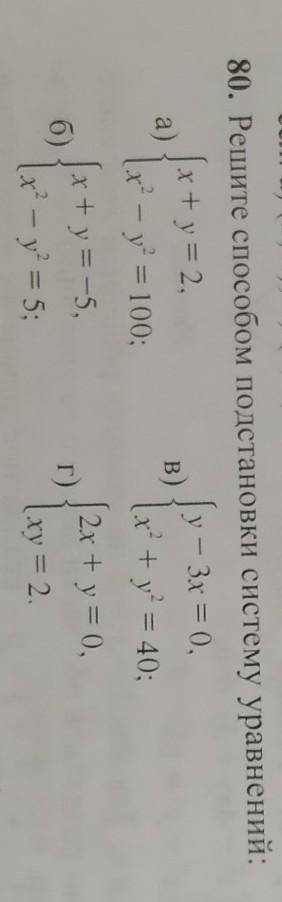 80. Решите способом подстановки систему уравнений:
а) { x + y = 2,
x² − y² = 100;
б) { x + y = −5,
x² − y² = 5;
в) { y − 3x = 0,
x² + y² = 40;
г) { 2x + y = 0,
xy = 2.